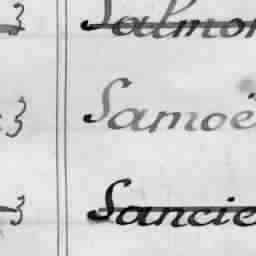 3 Salmon
3 Samoë
3 Sancie